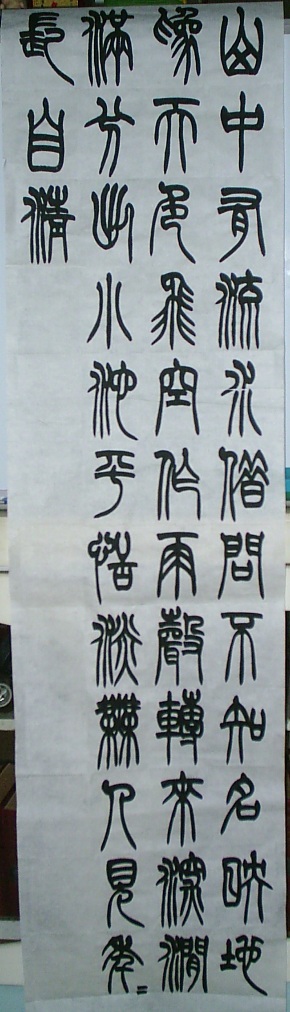 山中有流水借問不知名映地
爲天色飛空作雨聲轉來深澗
滿分出小池平恬淡無人見年〻
長自清